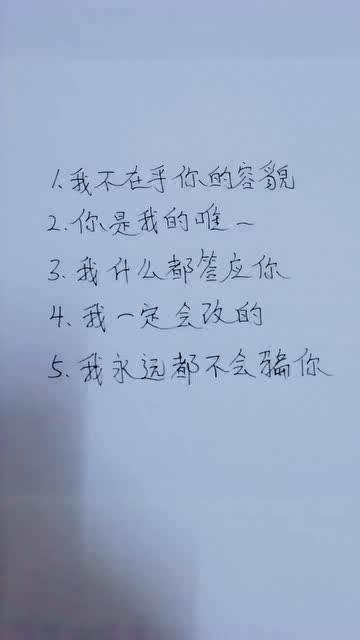 1.我不在乎你的容貌
2.你是我的唯一
3.我什么都答应你
4.我一定会改的
5.我永远都不会骗你